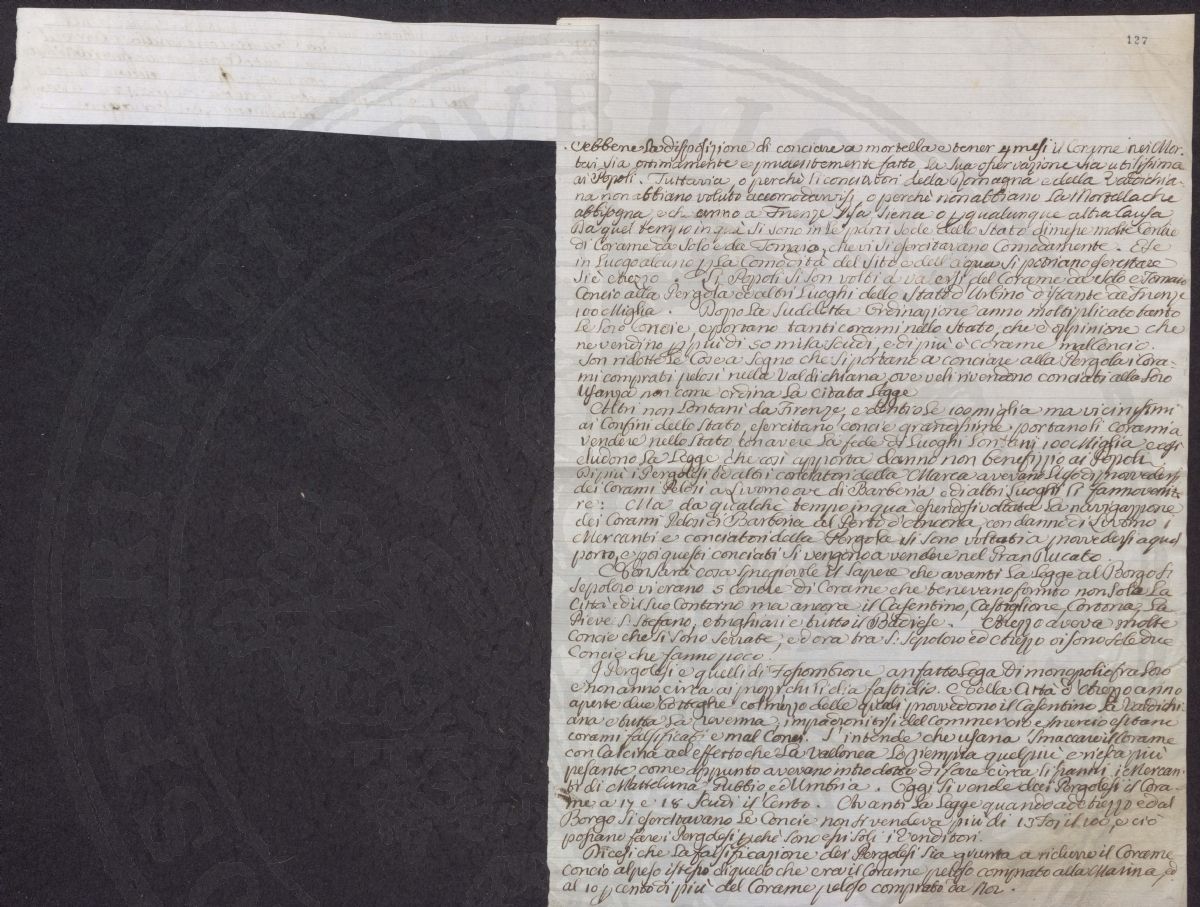 127
Sebbene la disposizione di conciare a mortella e tener 4 mesi il Corame nei Mor-
tai sia ottimamente e prudentemente fatto la sua osservazione sia utilissima
ai Popoli. Tuttavia, o perchè li conciatori della Romagna e della Valdichia-
na non abbiano voluto accomodarvisi, o perchè non abbiano la Mortella che
abbisogna, e che anno a Firenze Pisa Siena o p qualunque altra causa
Da quel tempo in quà si sono in le parti Sode dello Stato dimesse molte Concie
di Corame da Solo e da Tomaio, che vi si esercitavano Comodamente. E se
in Luogo alcuno p la Comodità del Sito e dell acqua si potriano esercitare
si è Arezzo. Li Popoli si son volti a valersi del Corame da Solo e Tomaio
Concio alla Pergola ed altri Luoghi dello Stato d'Urbino distante da Firenze
100 Miglia. Dopo la Suddetta Ordinazione anno moltiplicato tanto
le loro Concie, e portano tanti corami nello Stato, che è oppinione che
ne vendino p più di 50 mila scudi, e di più è Corame mal Concio.
Son ridotte le Cose a Segno che si portano a conciare alla Pergola i Cora-
mi comprati pelosi nella Valdichiana, ove veli rivendono conciati alla loro
usanza non come ordina la citata Legge
Altri non lontani da Firenze, e dentro le 100 miglia ma vicinissimi
ai Confini dello Stato, esercitano concie grandissime portano li corami a
vendere nello Stato con avere la fede di Luoghi Lontani 100 Miglia e così
eludono la Legge che così apporta danno non benefizio ai Popoli
Di più i Pergolesi ed altri conciatori della Marca avevano l'uso di provvedersi
dei Corami Pelosi a Livorno ove di Barberia e di altri Luoghi si fanno veni-
re: Ma da qualche tempo in qua essendosi voltata la navigazione
dei Corami Pelosi di Barberia al Porto d'Ancona, con danno di Livorno i
Mercanti e conciatori della Pergola si sono voltati a provvedersi a quel
porto, e poi questi conciati si vengono a vendere nel Gran Ducato.
Non sarà cosa spregievole il Sapere che avanti la Legge al Borgo S.
Sepolcro vi erano 5 concie di Corame che tenevano fornito non Solo La
Città ed il suo Contorno ma ancora il Casentino, Castiglione, Cortona, La
Pieve S. Stefano, Anghiari e tutto il Aretino aveva molte
Concie che si sono serrate, ed ora tra S. Sepolcro ed Arezzo vi sono sole due
Concie che fanno poco.
I Pergolesi e quelli di Fossombrone an fatto Lega di monopolio fra loro
e non anno circa ai prezzi chi li dia fastidio. E nella Città d'Arezzo anno
aperte due botteghe col mezzo delle quali provvedono il Casentino la Valdichi-
ana e tutta la impadronitisi del Commercio e smercio esitano
corami falsificati e mal Conci. S'intende che usano smaccare il Corame
con Calcina ad effetto che la Vallonea lo riempia quel più e riesca più
pesante come appunto avevano introdotto di fare circa li panni i Mercan-
ti di Matelica Gubbio ed Umbria. Oggi si vende dai Pergolesi il Cora-
me a 17 e 18 Scudi il Cento. Avanti la Legge quando ad Arezzo ed al
Borgo si esercitavano le Concie non si vendeva più di 13 il 100, e ciò
possano fare i Pergolesi p chè sono essi soli i Venditori.
Dicesi che la falsificazione dei Pergolesi sia giunta a ridurre il Corame
concio al peso istesso di quello che era il Corame peloso comprato alla Marina ed
al 10 p cento di più del Corame peloso comprato da Noi.